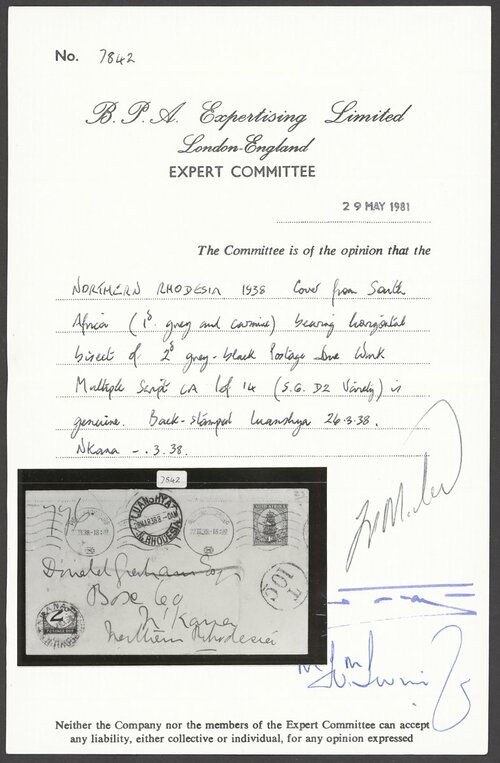 No. 7842
B.P.A. Expertising Limited
London-England
EXPERT COMMITTEE
29 MAY 1981
The Committee is of the opinion that the
NORTHERN RHODESIA 1938 Cover from South
Africa (1d. grey and carmine) bearing horizontal
bisect of 2d grey-black Postage Due Wmk
Multiple Script CA lof 14 (S.G. D2 Variety) is
genuine. Back-stamped Luanshya 26.3.38.
Nkana -.3.38.
7842
LUANSHYA
N. RHODESIA
Donald Graham Esq
Box 60
N'Kana
Northern Rhodesia
T
10C
2
POSTAGE DUE
Neither the Company nor the members of the Expert Committee can accept
any liability, either collective or individual, for any opinion expressed